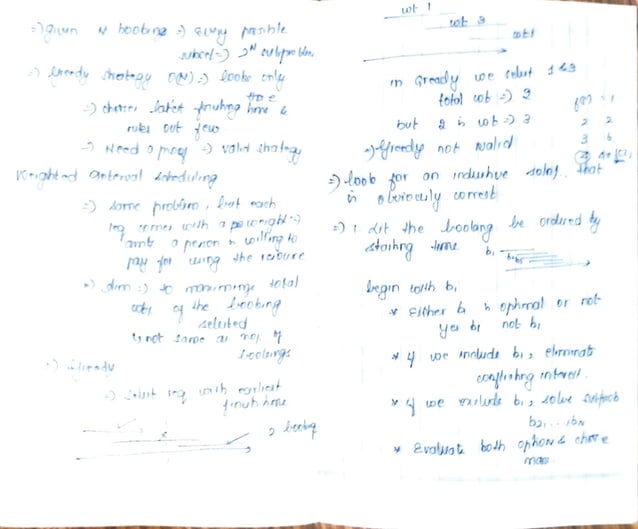 =) given N booking =) Every possible
subset =) 2^N subproblem
=) Greedy strategy O(N) =) looks only
one
=) choose latest finishing time &
rules out few
=) Need a proof =) valid strategy
Weighted interval scheduling
=) same problem, but each
req comes with a weight =)
amt a person is willing to
pay for using the resource
=) Aim =) to maximize total
of the booking
selected
is not same as no. of
bookings
=) Greedy
=) select req with earliest
finish time
2 booking
wt 1
wt 3
wt 1
in Greedy we select 1 & 3
total wt =) 2
but 2 is wt =) 3
=) Greedy not valid
1
2 2
3 6
=) look for an inductive soln. that
is obviously correct
=) 1 Let the booking be ordered by
starting time
b1
begin with b1
* Either b1 is optimal or not
yes b1 not b1
* If we include b1, eliminate
conflicting interval.
* If we exclude b1, solve subprob
b2,...bN
* Evaluate both options & choose
max.